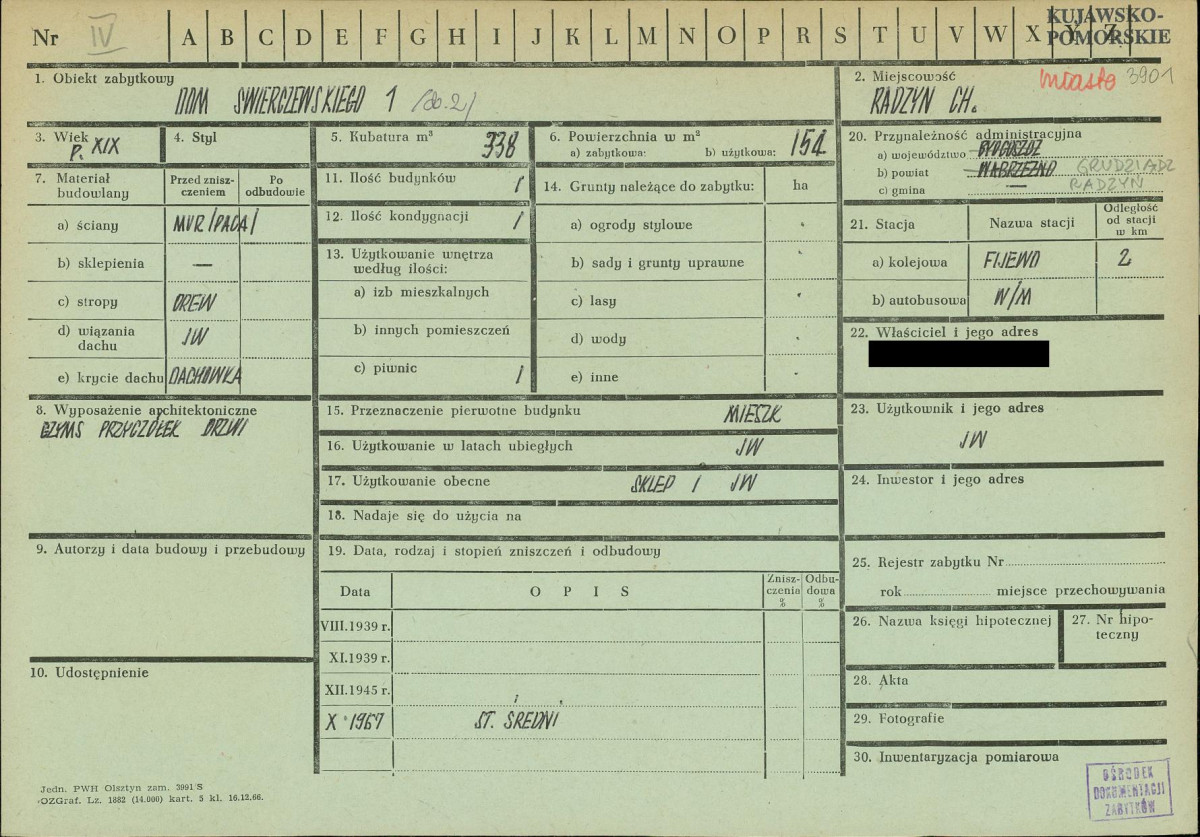 Nr IV A B C D E F G H I J K L M N O P R S T U V W X Y Z
KUJAWSKO-
POMORSKIE
1. Obiekt zabytkowy
DOM SWIERCZEWSKIEGO 1 /ob.2/
2. Miejscowość
miasto 3901
RADZYN CH.
3. Wiek
P. XIX
4. Styl
5. Kubatura m³ 338
6. Powierzchnia w m²
a) zabytkowa: b) użytkowa: 154
7. Materiał budowlany
Przed zniszczeniem
Po odbudowie
a) ściany MUR /PACA/
b) sklepienia —
c) stropy DREW
d) wiązania dachu JW
e) krycie dachu DACHOWKA
11. Ilość budynków 1
12. Ilość kondygnacji 1
13. Użytkowanie wnętrza
według ilości:
a) izb mieszkalnych
b) innych pomieszczeń
c) piwnic 1
14. Grunty należące do zabytku: ha
a) ogrody stylowe
b) sady i grunty uprawne
c) lasy
d) wody
e) inne
20. Przynależność administracyjna
a) województwo BYDGOSZCZ
b) powiat WĄBRZEŹNO GRUDZIĄDZ
c) gmina — RADZYN
21. Stacja Nazwa stacji Odległość od stacji w km
a) kolejowa FIJEWO 2
b) autobusowa W/M
22. Właściciel i jego adres
8. Wyposażenie architektoniczne
GZYMS PRZYCZÓŁEK DRZWI
15. Przeznaczenie pierwotne budynku MIESZK
16. Użytkowanie w latach ubiegłych JW
17. Użytkowanie obecne SKLEP I JW
18. Nadaje się do użycia na
23. Użytkownik i jego adres
JW
24. Inwestor i jego adres
9. Autorzy i data budowy i przebudowy
19. Data, rodzaj i stopień zniszczeń i odbudowy
Data OPIS Zniszczenia % Odbudowa %
VIII.1939 r.
XI.1939 r.
XII.1945 r.
X 1967 ST. ŚREDNI
10. Udostępnienie
25. Rejestr zabytku Nr
rok miejsce przechowywania
26. Nazwa księgi hipotecznej
27. Nr hipoteczny
28. Akta
29. Fotografie
30. Inwentaryzacja pomiarowa
Jedn. PWH Olsztyn zam. 3991 S
OZGraf. Lz. 1882 (14.000) kart. 5 kl. 16.12.66.
OŚRODEK
DOKUMENTACJI
ZABYTKÓW